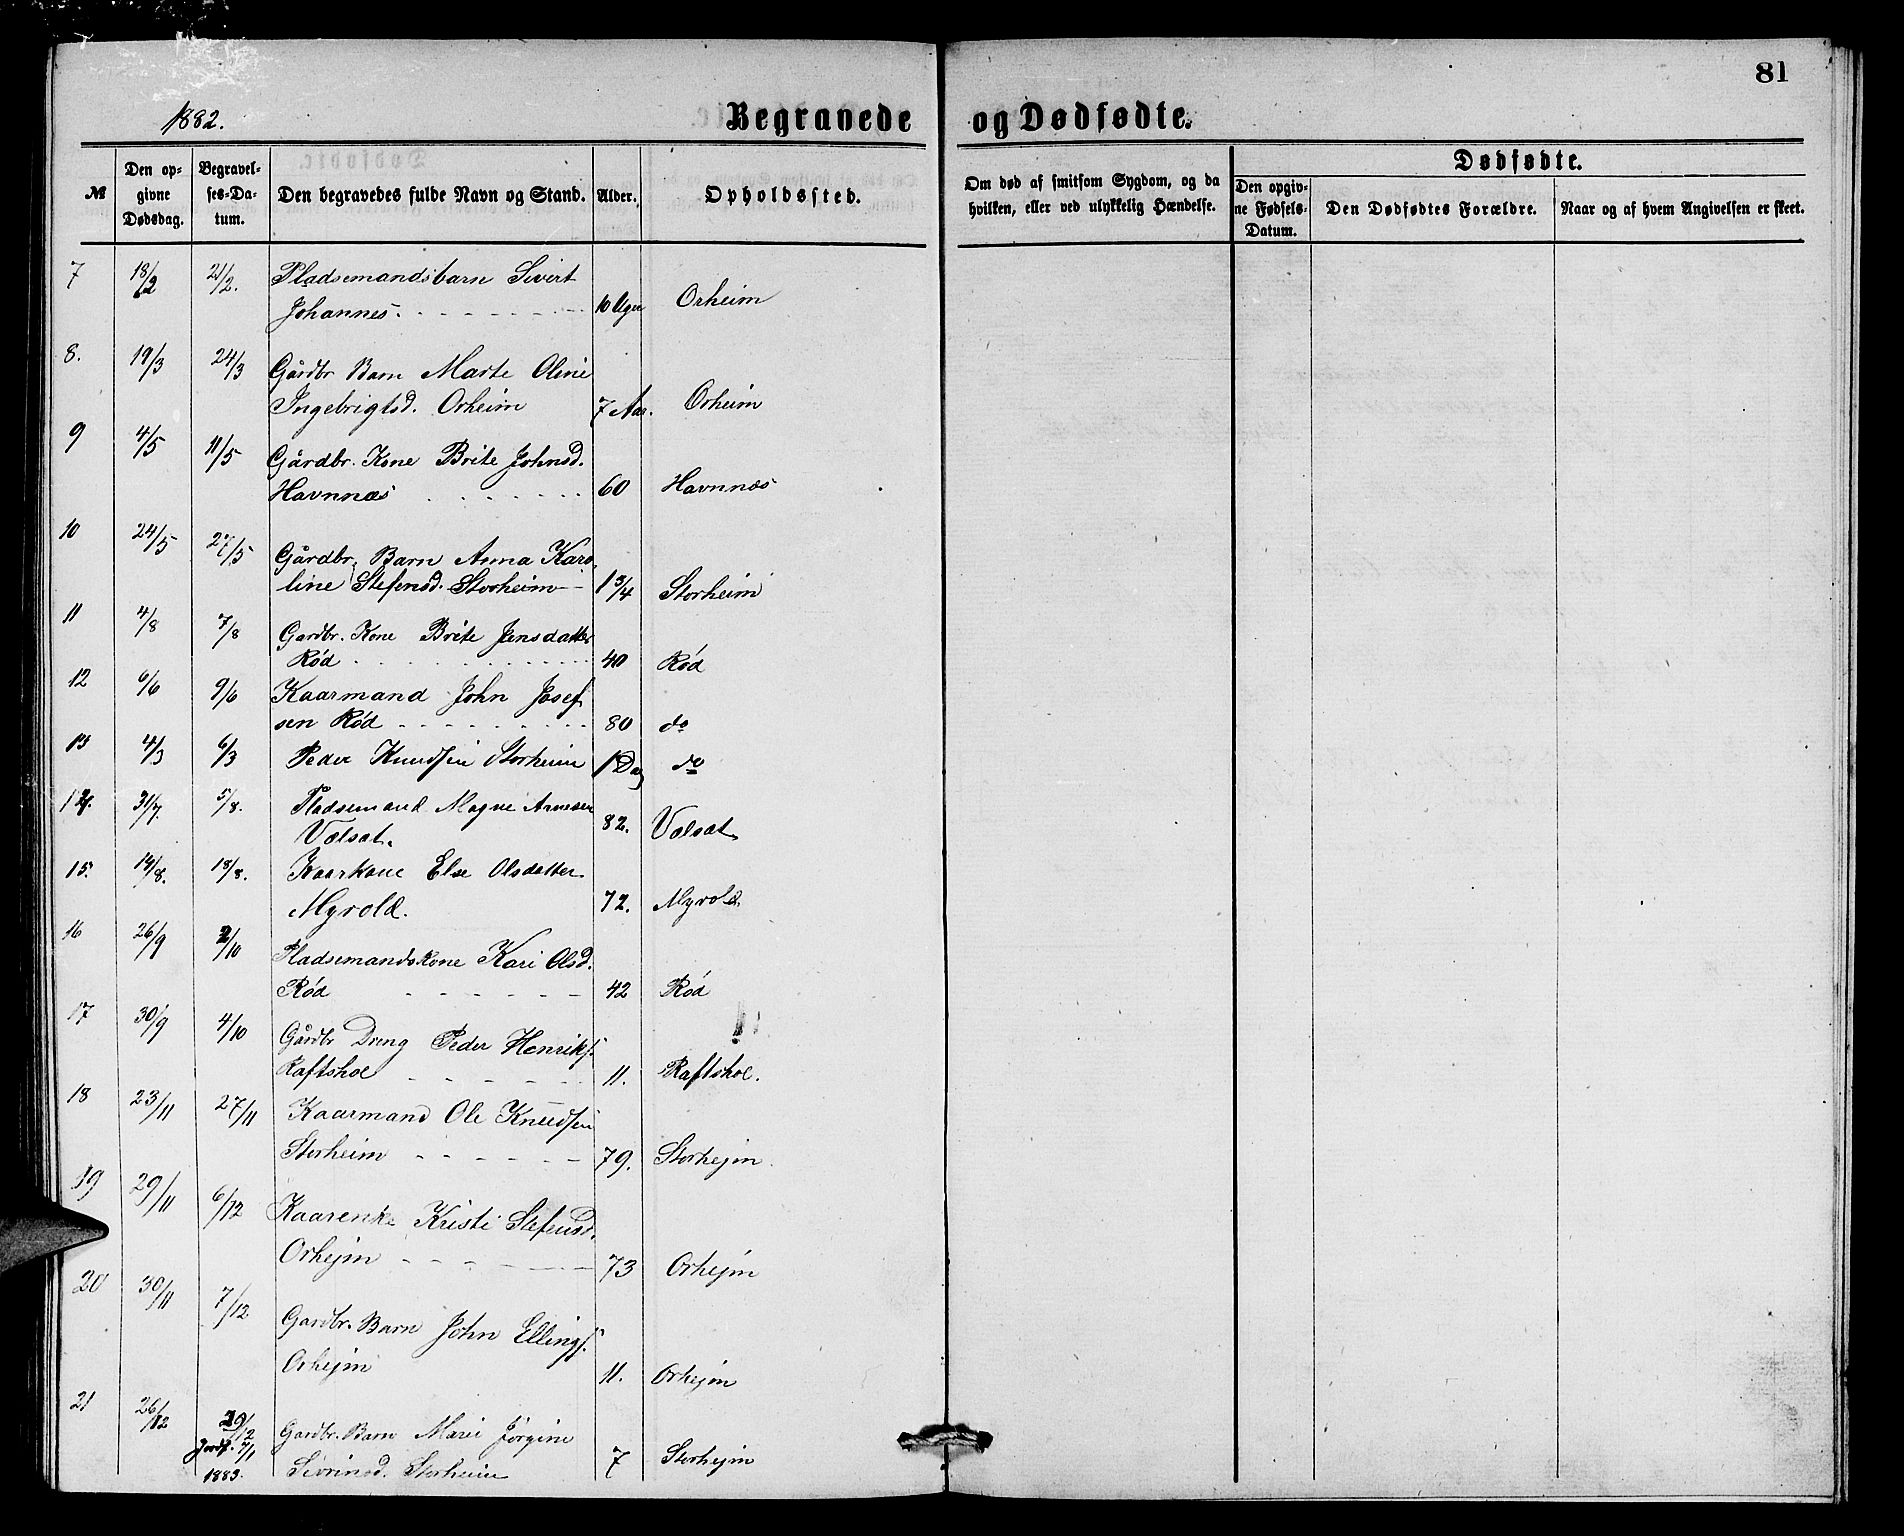 81
1882. Begravede og Dødfødte.
№ Den opgivne Dødsdag. Begravelses-Datum. Den begravedes fulde Navn og Stand. Alder. Opholdssted. Om død af smitsom Sygdom, og da hvilken, eller ved ulykkelig Hændelse. Dødfødte. Den opgivne Fødsels-Datum. Den Dødfødtes Forældre. Naar og af hvem Angivelsen er skeet.
7 18/2 21/2. Pladsemandsbarn Sivert
Johannes. 10 Uger Orheim
8. 19/3 24/3 Gårdbr Barn Marte Oline
Ingebrigtsd. Orheim 7 Aar. Orheim
9 4/5 11/5 Gårdbr. Kone Brite Johnsd.
Havnnæs 60 Havnnæs
10 24/5 27/5 Gårdbr. Barn Anna Karo
line Stefensd. Storheim 1 3/4 Storheim
11 4/8 7/8 Gardbr. Kone Brite Jensdatter
Rød 40 Rød
12 6/6 9/6 Kaarmand John Josef
sen Rød 80 do
13 4/3 6/3 Peder Knudsen Storheim 1 Dag do
14. 31/7. 5/8. Pladsemand Magne Arnesen
Vælsat. 82. Vælsæt
15. 14/8. 18/8. Kaarkone Else Olsdatter
Myrold. 72. Myrold.
16 26/9 2/10 Pladsemandskone Kari Olsd.
Rød 42 Rød
17 30/9 4/10 Gårdbr Dreng Peder Henriks.
Raftshol 11. Raftshol.
18 23/11 27/11 Kaarmand Ole Knudsen
Storheim 79. Storhejm
19 29/11 6/12 Kaarenke Kristi Stefensd.
Orhejm 73 Orhejm
20 30/11 7/12 Gardbr. Barn John Ellings.
Orhejm 11. Orhejm
21 26/12 29/12 Gardbr. Barn Marie Jørgine
Jordf. 7/1
1883. Sivrinsd. Storheim 7 Storhejm